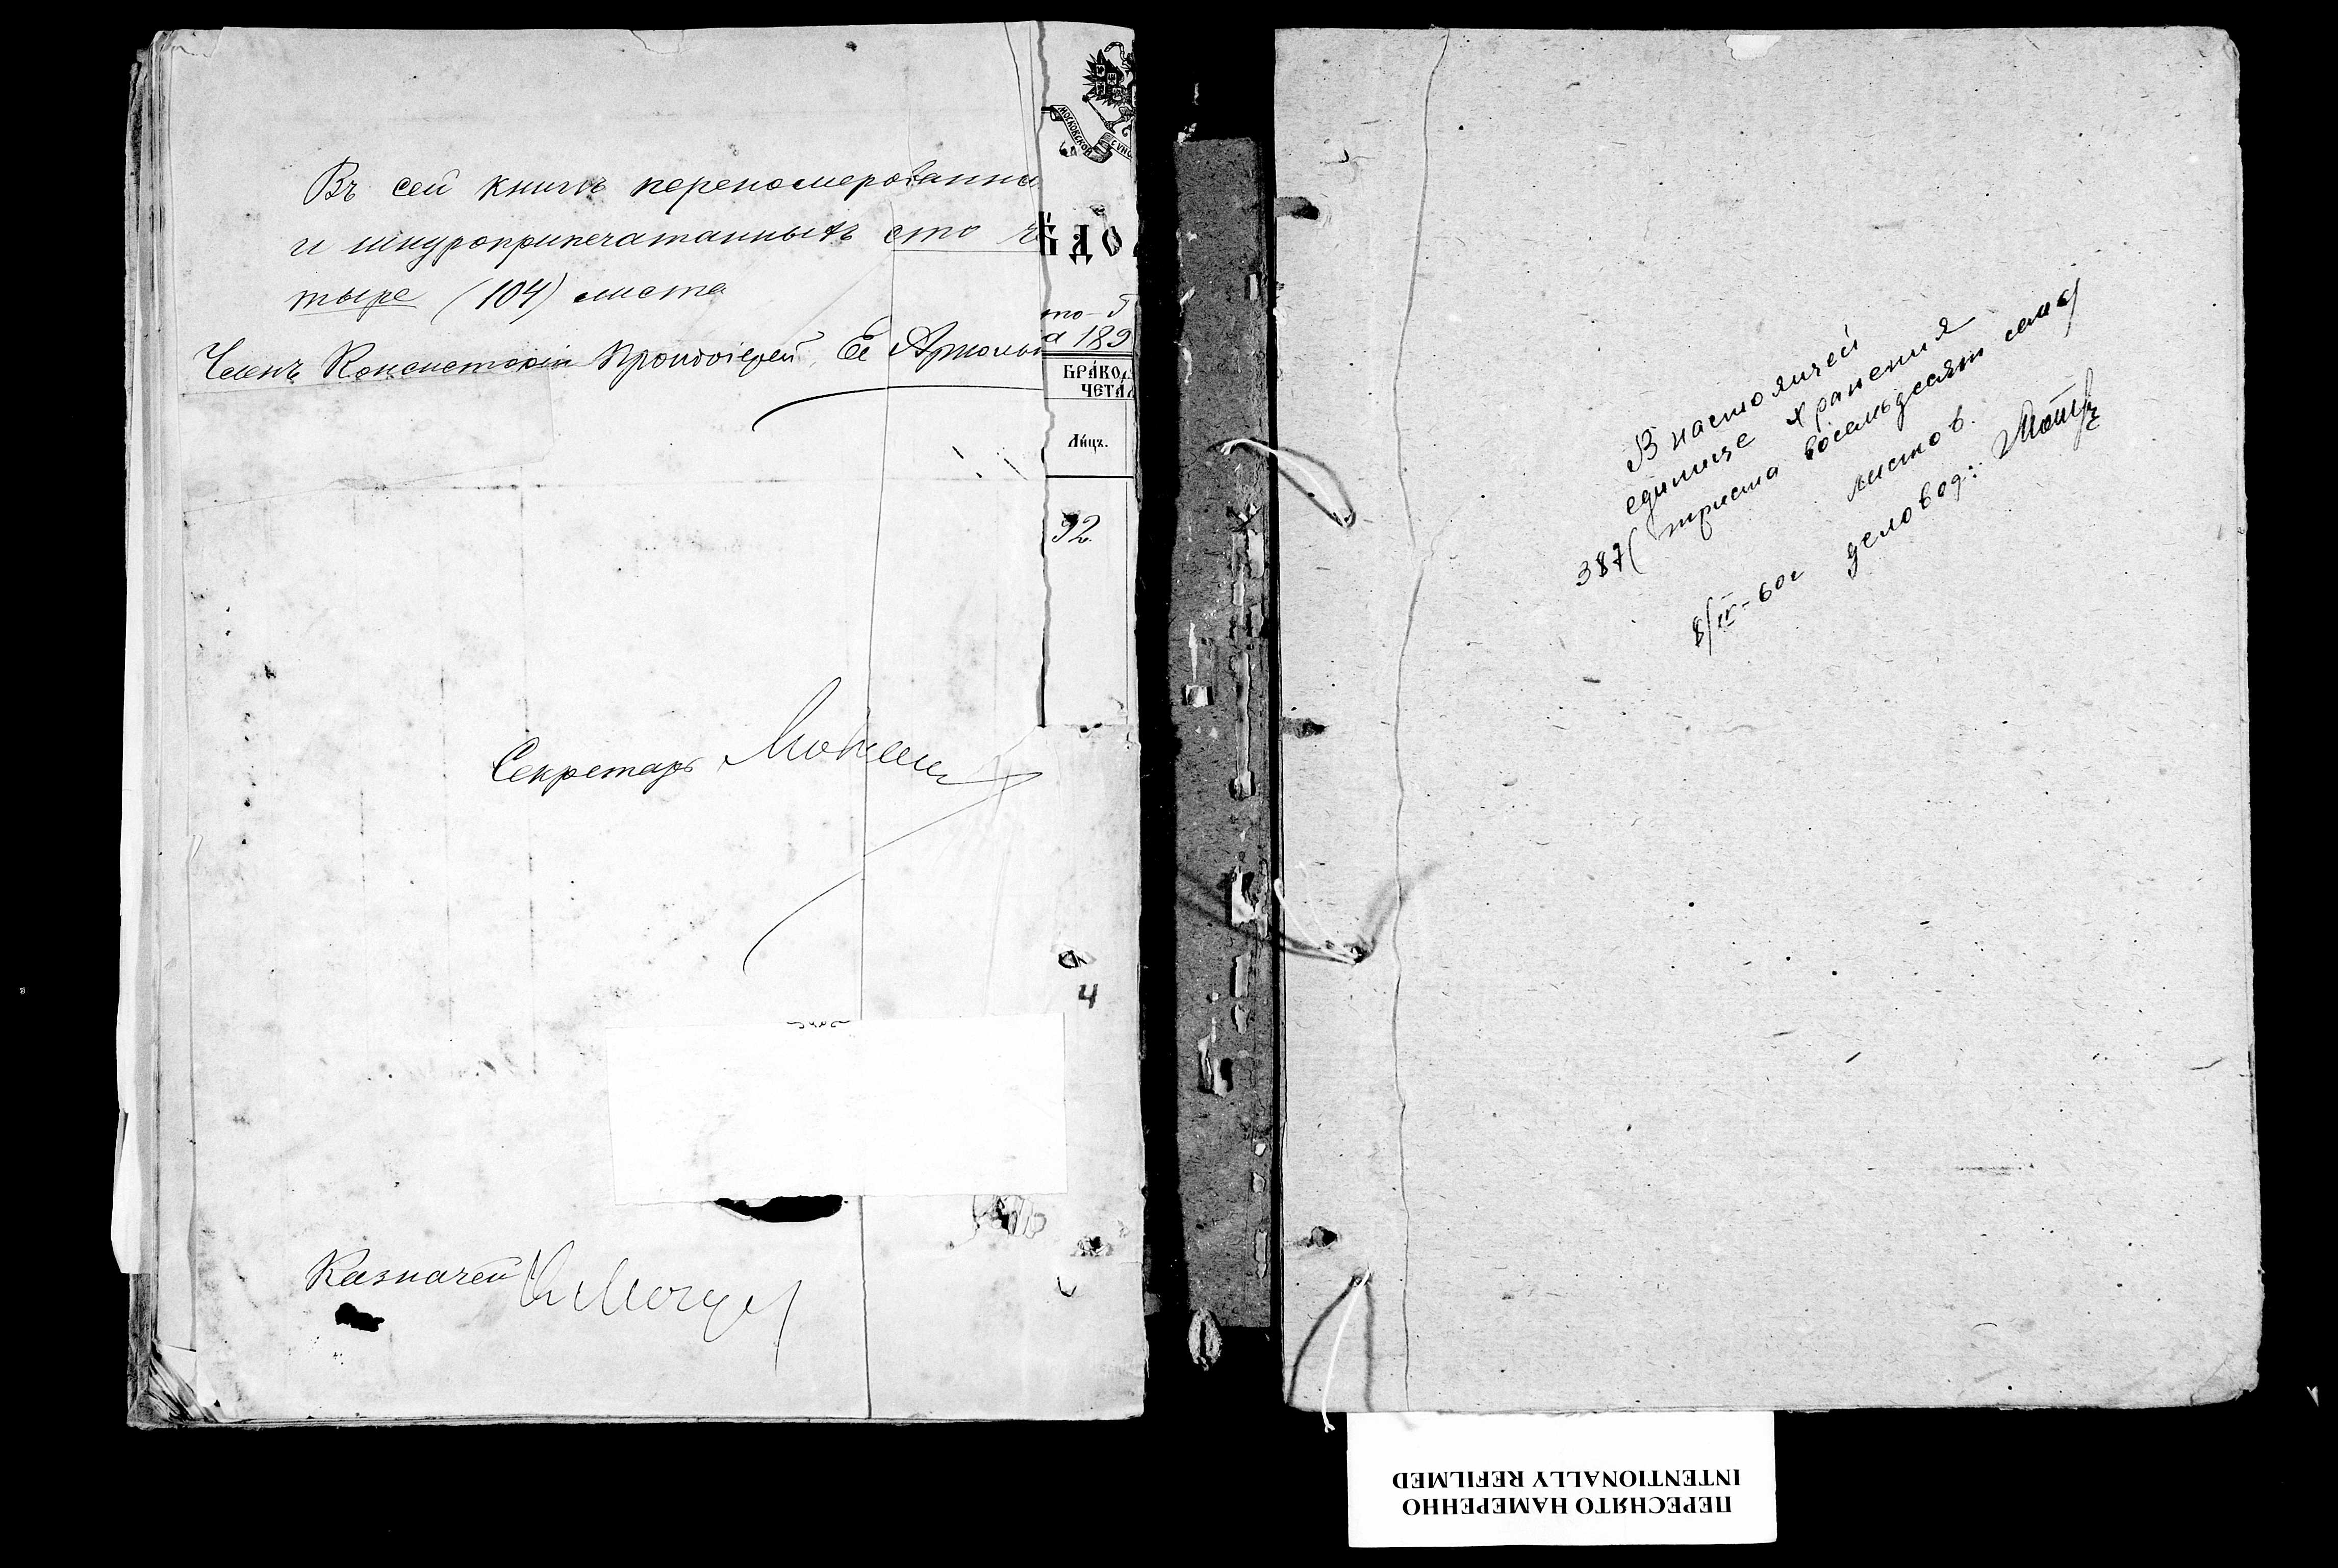 Въ сей книгѣ переномерованны
и шнуроприпечатанныхъ сто че
тыре (104) листа
Членъ Консисторіи Протоіерей
Секретарь
Казначей
МОСКОВСКОЙ
то
а 189
БРАКО
ЧЕТА
Лицъ.
92.
4
В настоящей
единице хранения
387 (триста восемьдесят семь)
листов.
8/IV-60г деловод:
ПЕРЕСНЯТО НАМЕРЕННО
INTENTIONALLY REFILMED